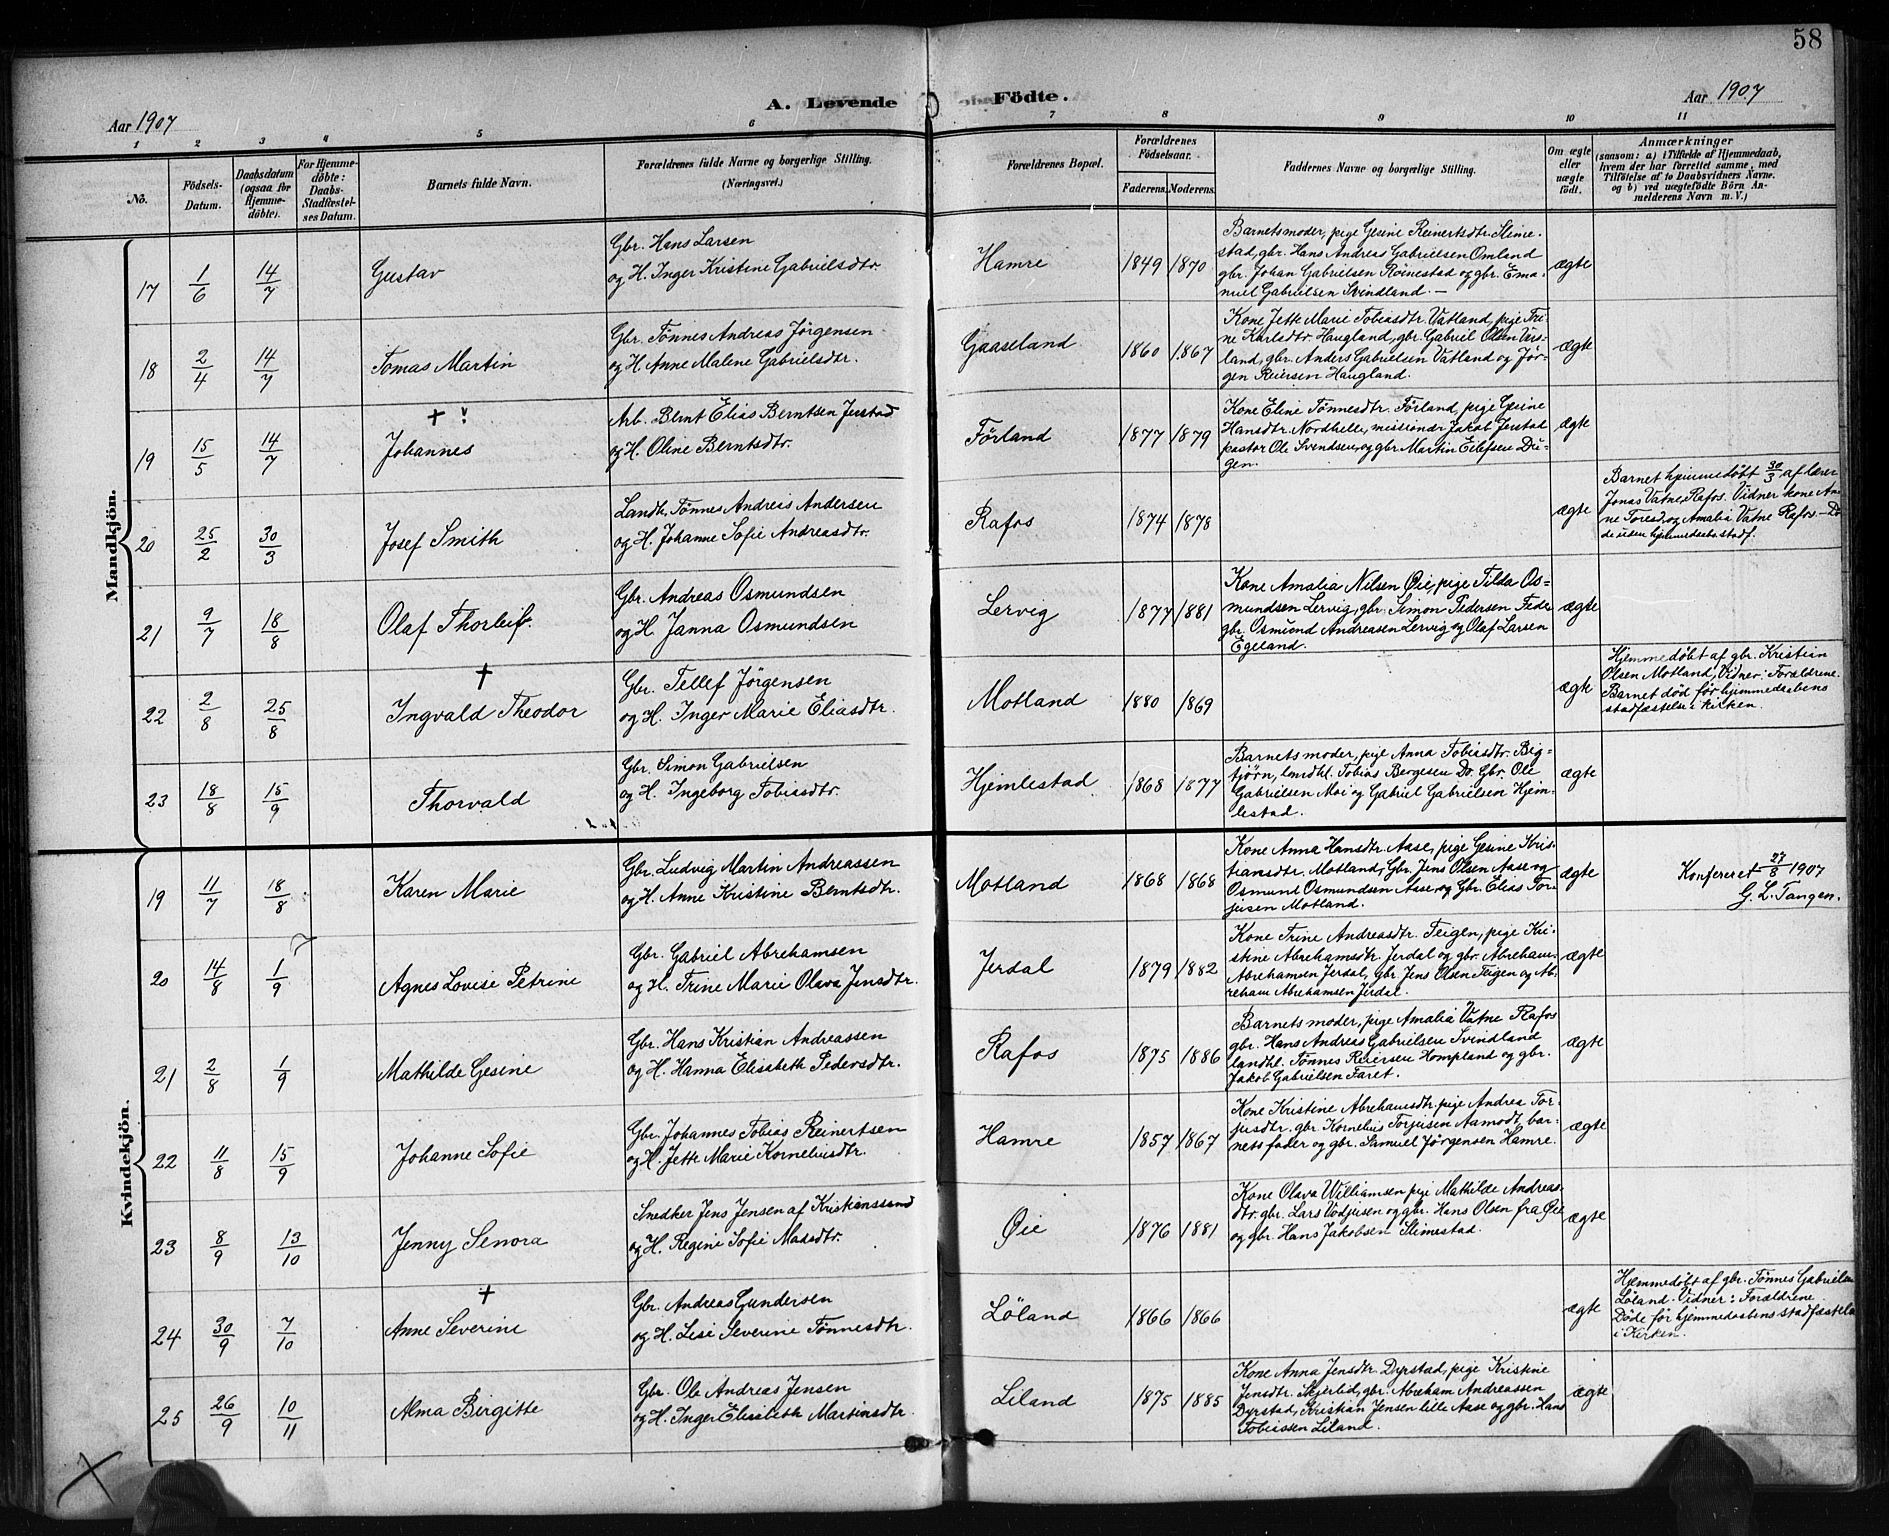 58
A. Levende Födte.
Aar 1907
Aar 1907
1 2 3 4 5 6 7 8 9 10 11
No.
Födsels-Datum.
Daabsdatum (ogsaa for Hjemme-döbte).
For Hjemme-döbte: Daabs-Stadfæstel-ses Datum.
Barnets fulde Navn.
Forældrenes fulde Navne og borgerlige Stilling.
(Næringsvei.)
Forældrenes Bopæl.
Forældrenes Födselsaar.
Faderens. Moderens.
Faddernes Navne og borgerlige Stilling.
Om ægte eller uægte födt.
Anmærkninger
(saasom: a) i Tilfælde af Hjemmedaab,
hvem der har forrettet samme, med
Tilföielse af to Daabsvidners Navne.
og b) ved uægtefödte Börn An-
melderens Navn m. V.)
Mandkjön.
17 1/6 14/7 Gustav
Gbr. Hans Larsen
og H. Inger Kristine Gabrielsdtr.
Hamre 1849 1870
Barnets moder, pige Gesine Reinertsdtr. Slime-
stad, gbr. Hans Andreas Gabrielsen Omland
gbr. Johan Gabrielsen Röinestad og gbr. Ema-
nuel Gabrielsen Svindland. —
ægte
18 2/4 14/7 Tomas Martin
Gbr. Tönnes Andreas Jörgensen
og H. Anne Malene Gabrielsdtr.
Gaaseland 1860 1867
Kone Jette Marie Tobiasdtr. Vatland, pige Tri-
ne Karlsdtr. Haugland, gbr. Gabriel Olsen Vers-
land, gbr. Anders Gabrielsen Vatland og Jör-
gen Reiersen Haugland.
ægte
19 15/5 14/7 + ! Johannes
Arb. Bernt Elias Berntsen Jerstad
og H. Oline Berntsdtr.
Förland 1877 1879
Kone Eline Tönnesdtr. Förland, pige Gesine
Hansdtr. Nordhelle, missionær Jakob Jerstad
pastor Ole Svendsen, og gbr. Martin Eilefsen Du-
gen.
ægte
20 25/2 30/3 Josef Smith
Landh. Tönnes Andreas Andersen
og H. Johanne Sofie Andreasdtr.
Rafos 1874 1878
ægte
Barnet hjemmedöbt 30/3 af lærer
Jonas Vatne, Rafos. Vidner kone An-
ne Toresd. og Amalia Vatne Rafos. — Dö
de uden hjemmedaabs stadf.
21 9/7 18/8 Olaf Thorleif.
Gbr. Andreas Osmundsen
og H. Janna Osmundsen
Lervig 1877 1881
Kone Amalia Nilsen Öie, pige Tilda Os-
mundsen Lervig, gbr. Simon Pedersen Fede
gbr. Osmund Andreasen Lervig og Olaf Larsen
Egeland.
ægte
22 2/8 25/8 + Ingvald Theodor
Gbr. Tellef Jörgensen
og H. Inger Marie Eliasdtr.
Motland 1880 1869
ægte
Hjemmedöbt af gbr. Kristian
Olsen Motland, Vidner: Forældrene.
Barnet död för hjemmedaabens
stadfæstelse i kirken.
23 18/8 15/9 Thorvald
Gbr. Simon Gabrielsen
og H. Ingeborg Tobiasdtr.
Hjemlestad 1868 1877
Barnets moder, pige Anna Tobiasdtr. Big-
tjörn, landhl. Tobias Bergesen Do. Gbr. Ole
Gabrielsen Moi og Gabriel Gabrielsen Hjem-
lestad.
ægte
Kvindekjön.
19 11/7 18/8 Karen Marie
Gbr. Ludvig Martin Andreassen
og H. Anne Kristine Berntsdtr.
Motland 1868 1868
Kone Anna Hansdtr. Aase, pige Gesine Kris-
tiansdtr. Motland, Gbr. Jens Olsen Aase og
Osmund Osmundsen Aase, og Gbr. Elias Tor-
jusen Motland.
ægte
Konfereret 27/8 1907
G. L. Tangen.
20 14/8 1/9 Agnes Lovise Petrine
Gbr. Gabriel Abrehamsen
og H. Trine Marie Olava Jensdtr.
Jerdal 1879 1882
Kone Trine Andreasdtr. Feigen, pige Kri-
stine Abrehamsdtr. Jerdal og gbr. Abreham
Abrehamsen Jerdal, gbr. Jens Olsen Feigen og Ab-
reham Abrehamsen Jerdal.
ægte
21 2/8 1/9 Mathilde Gesine
Gbr. Hans Kristian Andreassen
og H. Hanna Elisabeth Pedersdtr.
Rafos 1875 1886
Barnets moder, pige Amalia Vatne Rafos
gbr. Hans Andreas Gabrielsen Svindland
landhl. Tönnes Reiersen Hompland og gbr.
Jakob Gabrielsen Faret.
ægte
22 11/8 15/9 Johanne Sofie
Gbr. Johannes Tobias Reinertsen
og H. Jette Marie Korneliusdtr.
Hamre 1857 1867
Kone Kristine Abrehamsdtr. pige Andrea Tor-
jusdtr. gbr. Kornelius Torjusen Aamodt, bar-
nets fader og gbr. Samuel Jörgensen Hamre.
ægte
23 8/9 13/10 Jenny Senora
Snedker Jens Jensen af Kristianssand
og H. Regine Sofie Madsdtr.
Öie 1876 1881
Kone Olava Williamsen pige Mathilde Andreas-
dtr. gbr. Lars Vödjesen og gbr. Hans Olsen fra Öie
og gbr. Hans Jakobsen Slimestad.
ægte
24 30/9 7/10 + Anne Severine
Gbr. Andreas Gundersen
og H. Lise Severine Tönnesdtr.
Löland 1866 1866
ægte
Hjemmedöbt af gbr. Tönnes Gabrielsen
Löland. Vidner: Forældrene.
Döde för hjemmedaabens stadfæstelse
i Kirken.
25 26/9 10/11 Alma Birgitte
Gbr. Ole Andreas Jensen
og H. Inger Elisabeth Martinsdtr.
Liland 1875 1885
Kone Anna Jensdtr. Dyrstad, pige Kristine
Jensdtr. Skjerlid, gbr. Abreham Andreassen
Dyrstad, Kristian Jensen lille Aase og gbr. Hans
Tobiassen Liland.
ægte